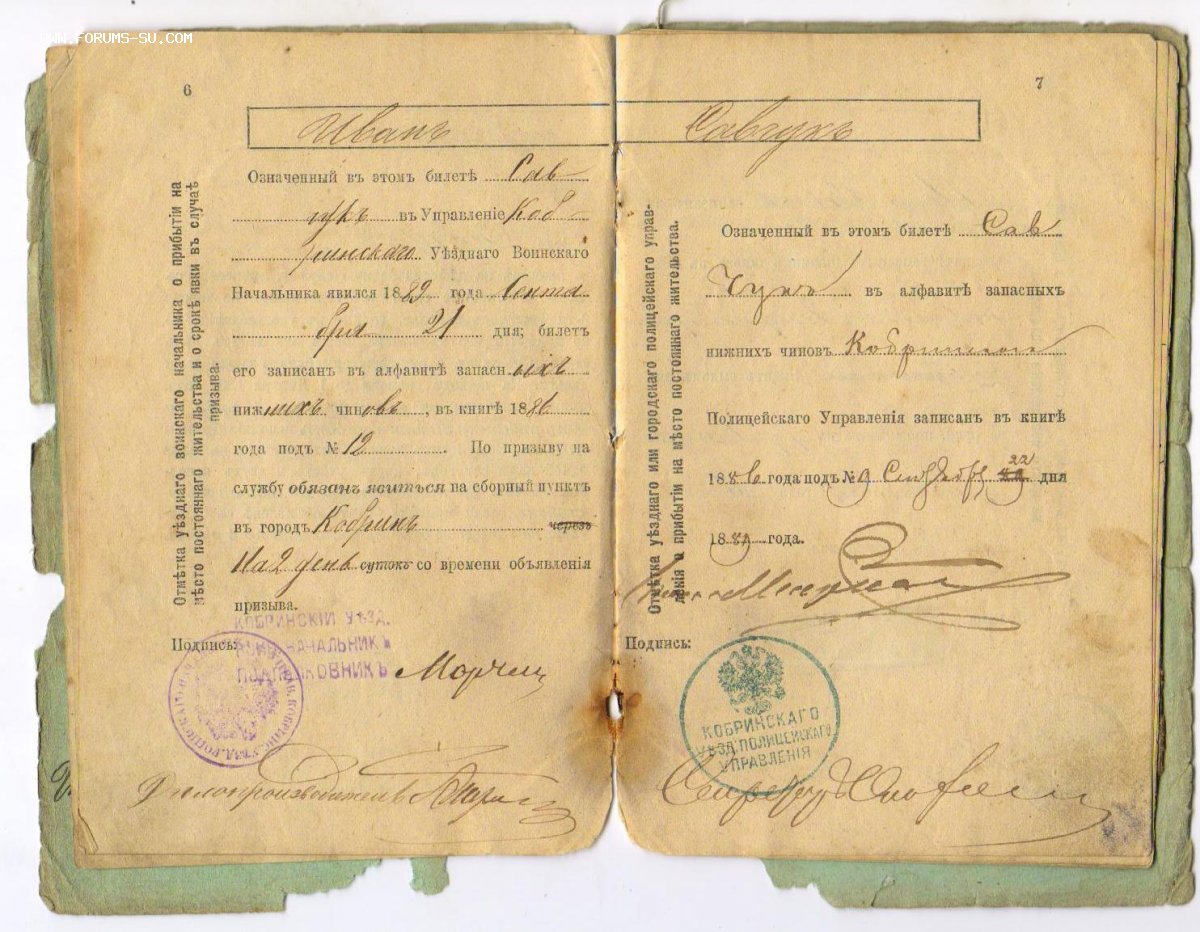 WWW.FORUMS-SU.COM
6
Иванъ
Отмѣтка уѣзднаго воинскаго начальника о прибытіи на
мѣсто постояннаго жительства и о срокѣ явки въ случаѣ
призыва.
Означенный въ этомъ билетѣ Сав-
чукъ въ Управленіе Коб-
ринскаго Уѣзднаго Воинскаго
Начальника явился 1889 года Сентя
бря 21 дня; билетъ
его записанъ въ алфавитѣ запасныхъ
нижнихъ чиновъ, въ книгѣ 1886
года подъ № 12. По призыву на
службу обязанъ явиться на сборный пунктъ
въ городъ Кобринъ черезъ
На 2 день сутокъ со времени объявленія
призыва.
КОБРИНСКІЙ УѢЗД.
НАЧАЛЬНИКЪ
ПОДПОЛКОВНИКЪ
Подпись:
Дѣлопроизводитель
7
Савчукъ
Отмѣтка уѣзднаго или городского полицейскаго управ-
ленія о прибытіи на мѣсто постояннаго жительства.
Означенный въ этомъ билетѣ Сав
чукъ въ алфавитѣ запасныхъ
нижнихъ чиновъ Кобринскаго
Полицейскаго Управленія записанъ въ книгѣ
1886 года подъ № Сентября 22 дня
1889 года.
Подпись:
КОБРИНСКАГО
УѢЗД. ПОЛИЦЕЙСКАГО
УПРАВЛЕНІЯ
Секретарь